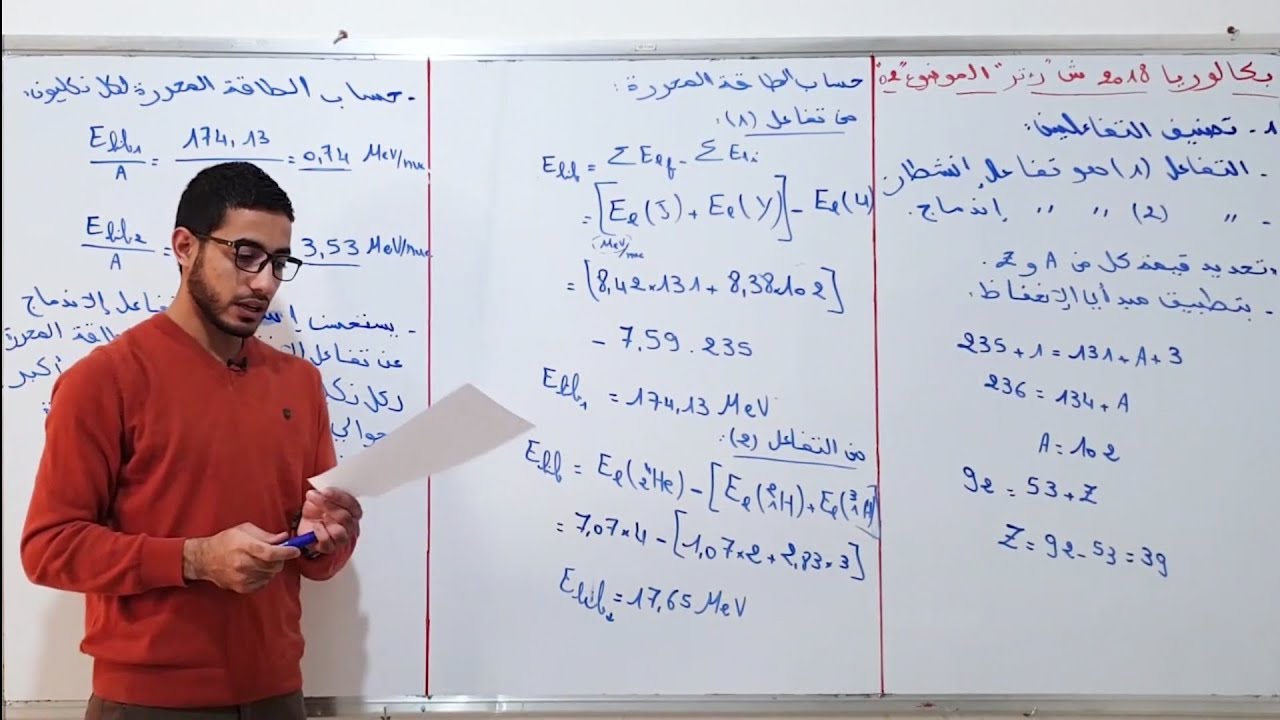 بكالوريا 2018 ش "ر،تر" الموضوع "02"
1 - تصنيف التفاعلين:
- التفاعل (1) هو تفاعل إنشطار
- " (2) " " إندماج.
- تحديد قيمة كل من A و Z.
- بتطبيق مبدأي الإنحفاظ.
235 + 1 = 131 + A + 3
236 = 134 + A
A = 102
92 = 53 + Z
Z = 92 - 53 = 39
حساب الطاقة المحررة:
من تفاعل (1):
Elib = ΣElf - ΣEli
= [El(I) + El(Y)] - El(U)
(MeV/nuc)
= [8,42×131 + 8,38×102]
- 7,59 . 235
Elib1 = 174,13 MeV
من التفاعل (2):
Elib = El(⁴₂He) - [El(²₁H) + El(³₁H)]
= 7,07×4 - [1,07×2 + 2,83×3]
Elib2 = 17,65 MeV
- حساب الطاقة المحررة لكل نكليون:
Elib1/A = 174,13 = 0,74 MeV/nuc
Elib2/A = 3,53 MeV/nuc
- يستحسن تفاعل الإندماج
عن تفاعل
طاقة المحررة
لكل أكبر
حوالي